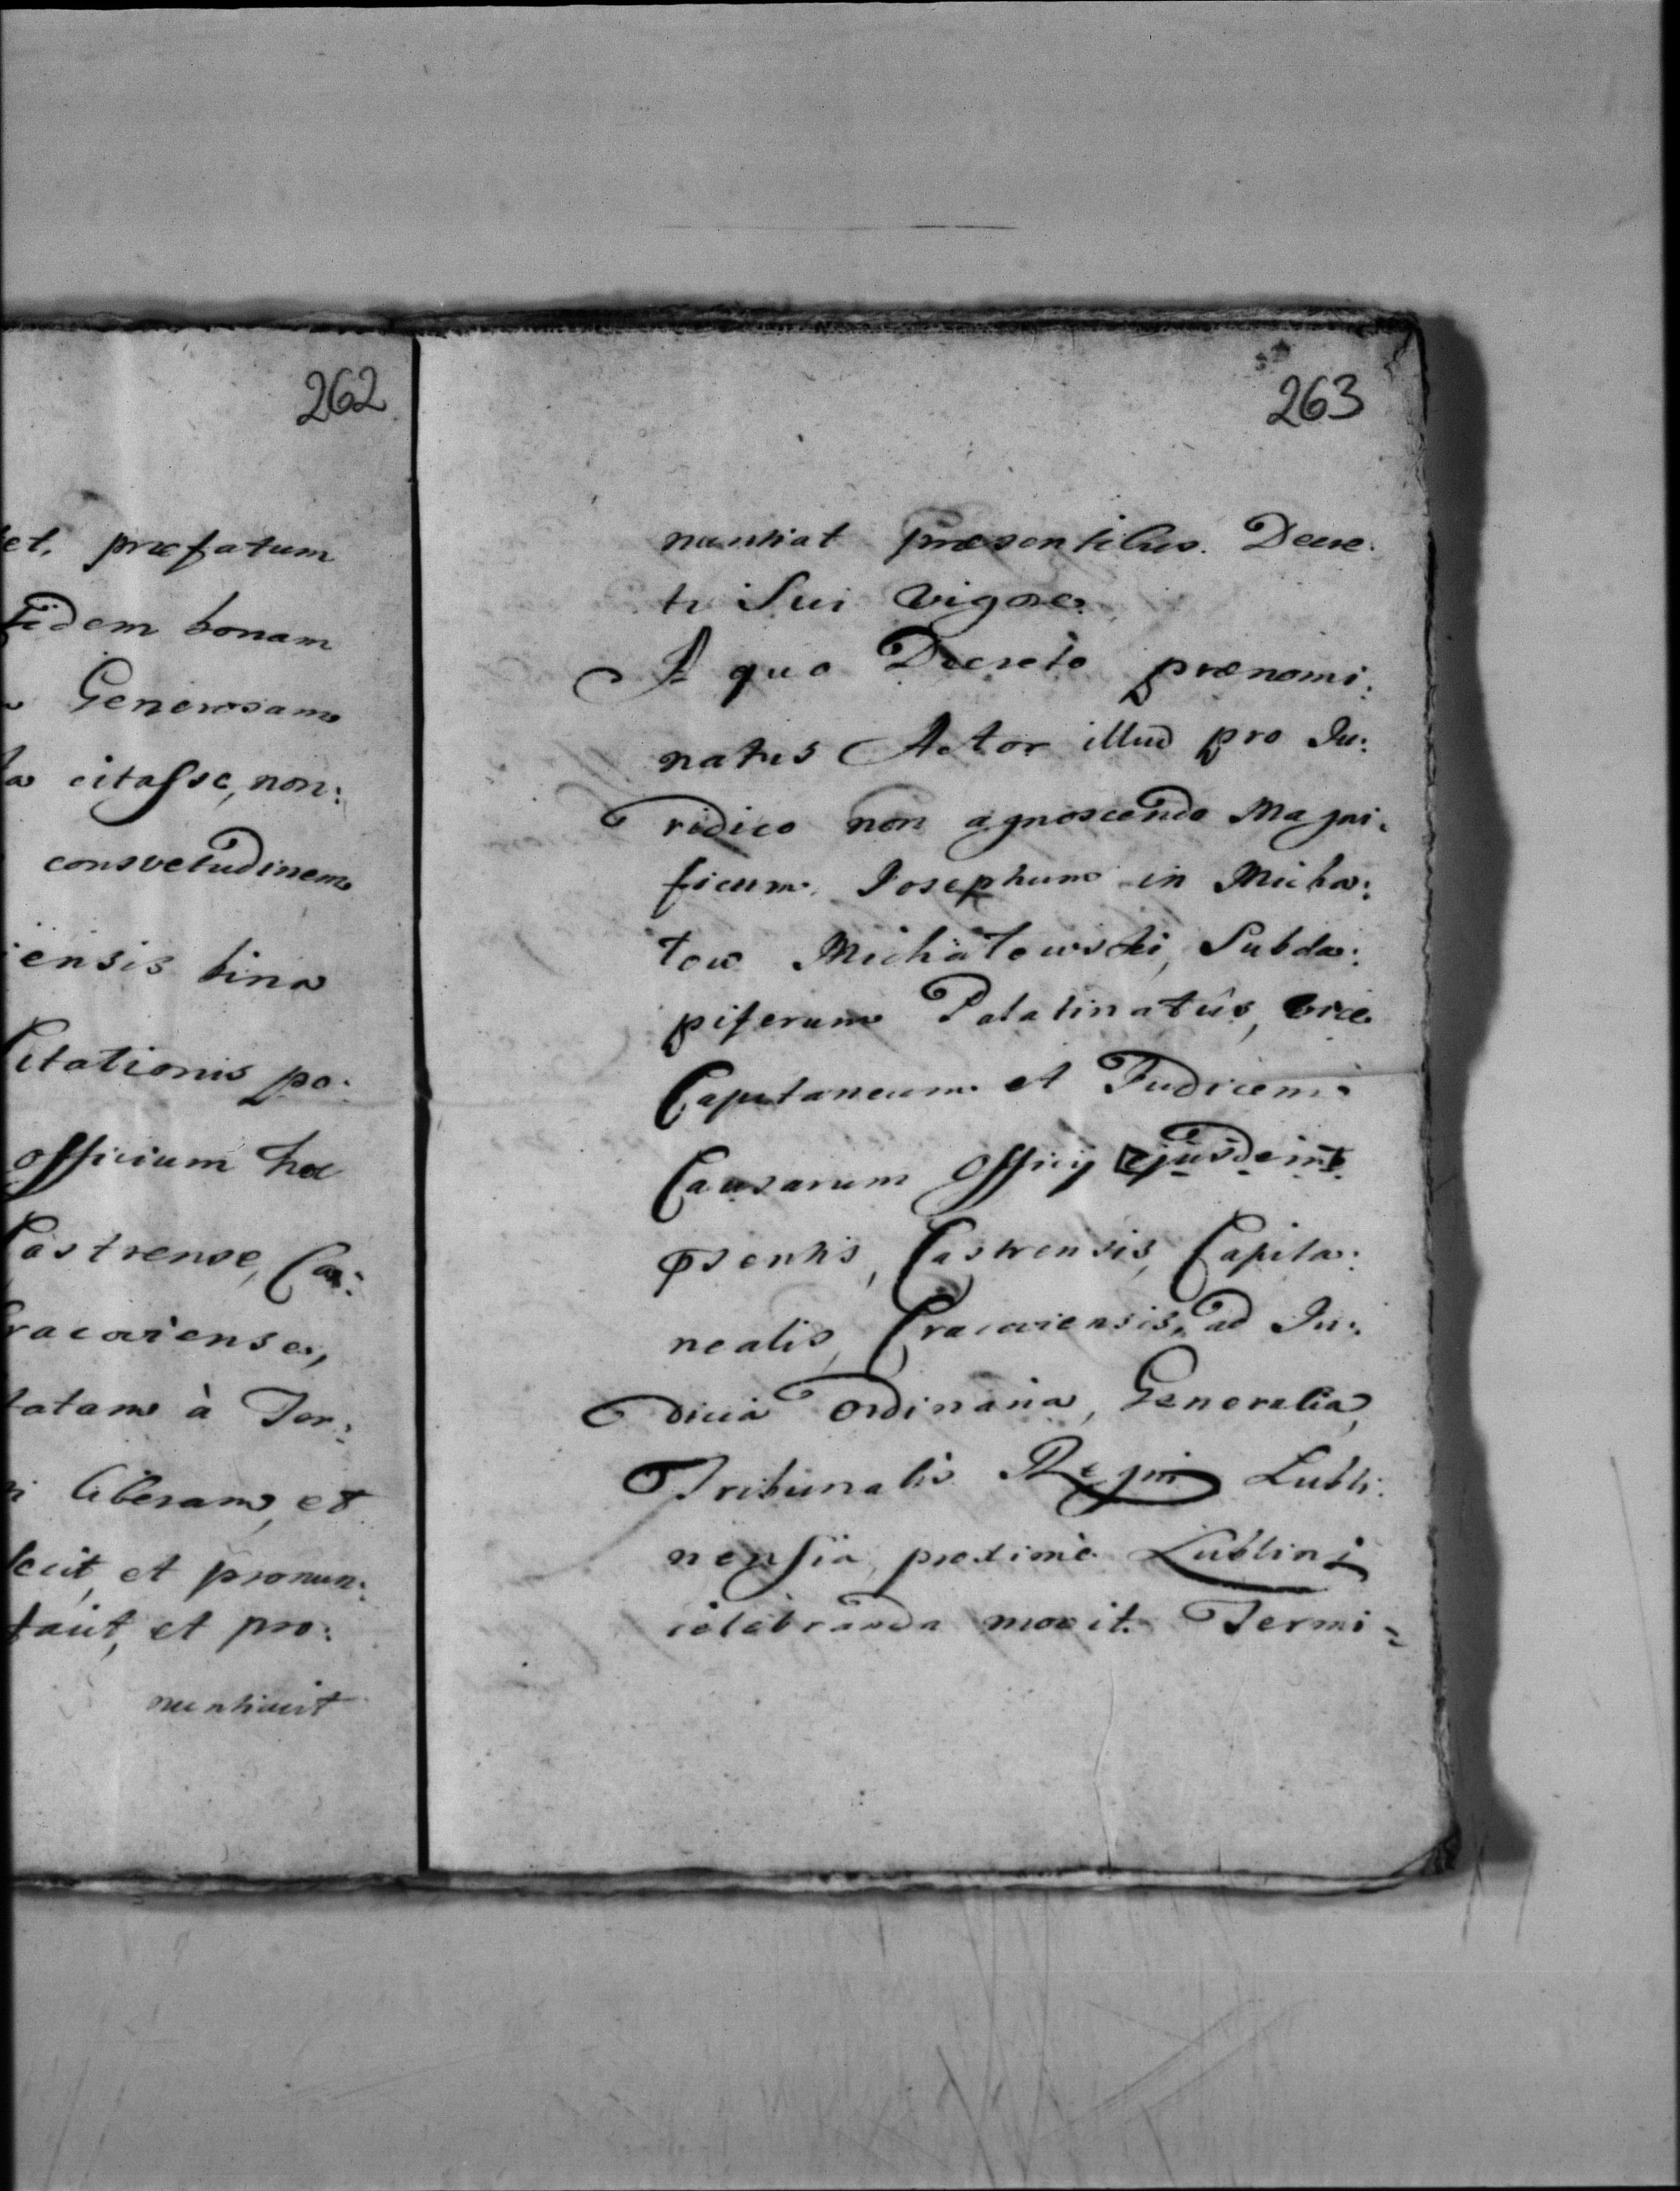 262
et, præfatum
fidem bonam
Generosam
citasse, non:
consvetudinem
ensis bina
Citationis po:
officium hoc
Castrense, Ca:
racoviense,
tatam à Ter:
liberam, et
et pronun:
et pro:
nuntiavit
263
nuntiat præsentibus Decre:
ti Sui vigore.
A quo Decreto prænomi:
natus Actor illud pro Ju:
ridico non agnoscendo Magni:
ficum Josephum in Micha:
łow Michałowski, Subda:
piferum Palatinatûs, Vice
Capitaneum et Judicem
Causarum Officij ejusdem
Psentis, Castrensis, Capita:
nealis, Cracoviensis, ad Ju:
dicia Ordinaria, Generalia,
Tribunalis Regni Lubli:
nensia, proxime Lublini
celebranda movit. Termi=